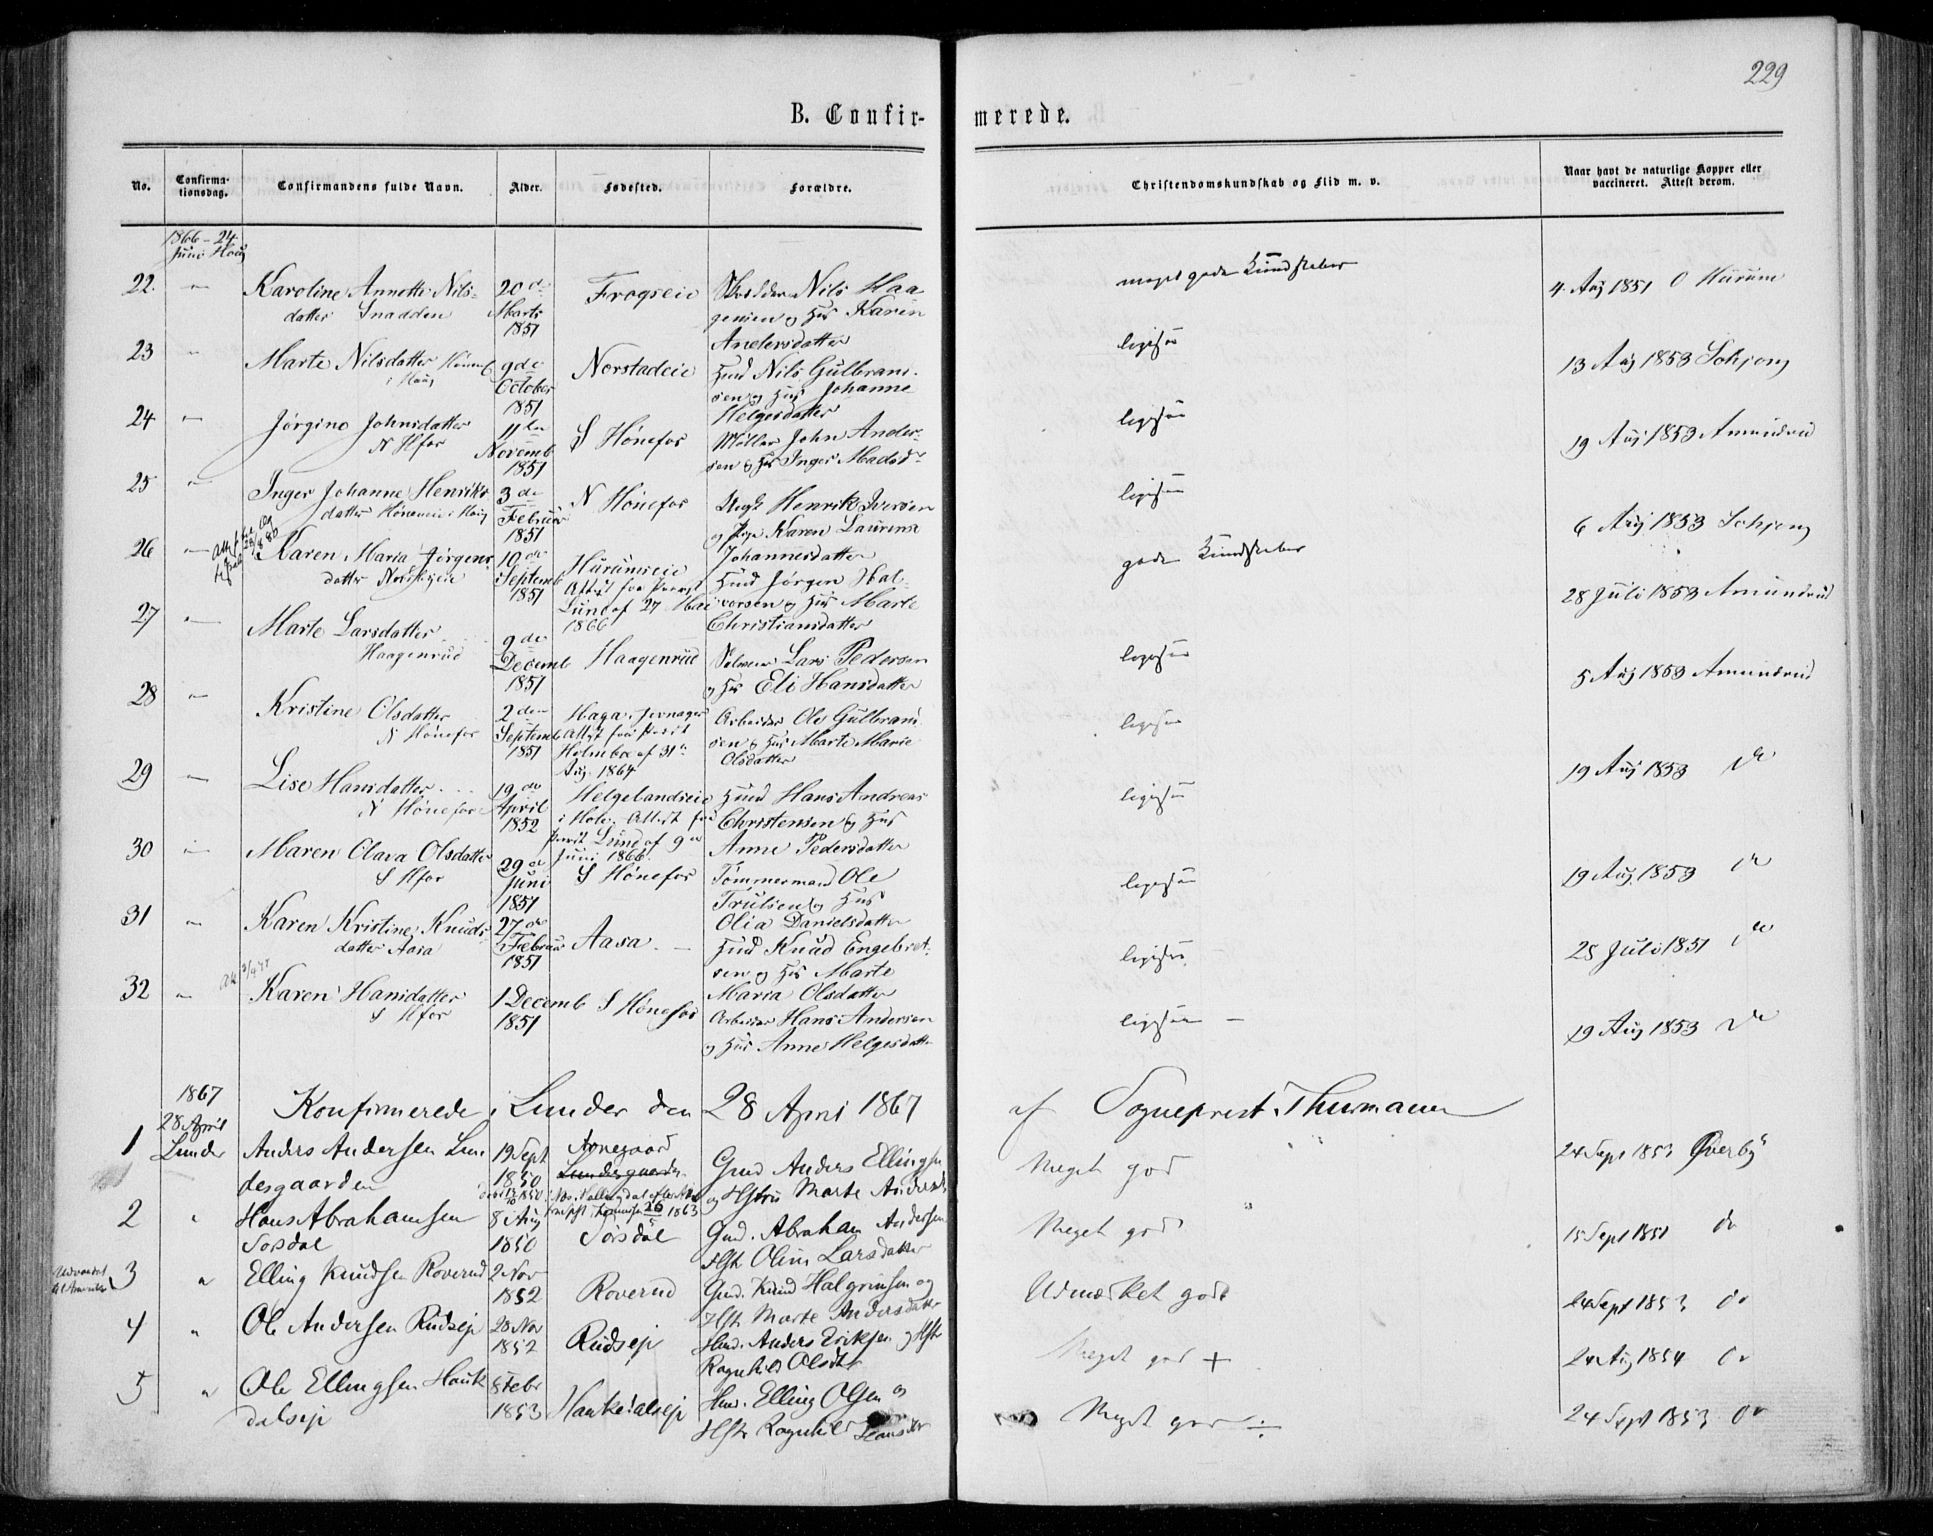 229
B. Confirmerede.
No.
Confirmationsdag.
Confirmandens fulde Navn.
Alder.
Fødested.
Forældre.
Christendomskundskab og Flid m. v.
Naar havt de naturlige Kopper eller vaccineret. Attest derom.
1866 - 24
Juni Haug
22. Karoline Annette Nils- 20de Frogseie Nils Haa- meget gode Kundskaber 4 Aug 1851 O Hurum
datter Snadden Marts gensen og Hus Karen
1851 Andersdatter
23 Marte Nilsdatter 9de Norstadeie Husmd Nils Gulbrand- ligesaa 13 Aug 1853 Schjong
i Haug October sen og Hus Johanne
1851 Helgesdatter
24 Jørgine Johnsdatter 11te S Hønefos Møller John Ander- ligesaa 19 Aug 1853 Amundrud
N Hfos Novemb sen og Hus Inger Madsdr
1851
25 Inger Johanne Henriks- 3de N Hønefos Henrik Iversen ligesaa 6 Aug 1853 Schjong
datter i Haug Februar og Karen Laurense
1851 Johannesdatter
26 Karen Maria Jørgens- 10de Hurumseie Husmd Jørgen Hal- gode Kundskaber 28 Juli 1853 Amundrud
datter Septemb Attest fra Provst vorsen og Hus Marte
1851 Lund af 27 Mai 1866 Christiansdatter
27 Marte Larsdatter 9de Haagenrud Lars Pedersen ligesaa 5 Aug 1853 Amundrud
Haagenrud Decemb og Hus Eli Hansdatter
1851
28 Kristine Olsdatter 2den Haga Jevnager Arbeider Ole Gulbrand- ligesaa 19 Aug 1853 do
N Hønefos Septemb Attest fra Provst sen og Hus Marte Marie
1851 Holmboe af 31te Aug. 1864 Olsdatter
29 Lise Hansdatter 19de Helgelandseie Husmd Hans Andreas ligesaa 19 Aug 1853 do
N Hønefos April i Hole. Attest fra Christensen og Hus
1852 Provst Lund af 9de Juni 1866. Anne Pedersdatter
30 Maren Olava Olsdatter 29de S Hønefos Tømmermand Ole ligesaa
S Hfos Juni Trulsen og Hus
1851 Olia Danielsdatter
31 Karen Kristine Knuds- 27de Aasa Husmd Knud Engebret- ligesaa 28 Juli 1851 do
datter Aasa Februar sen og Hus Marte
1851 Maria Olsdatter
32 Karen Hansdatter 1 Decemb S Hønefos Arbeider Hans Andersen ligesaa 19 Aug 1853 do
S Hfos 1851 og Hus Anne Helgesdatter
1867 Konfirmerede i Lunder den 28 April 1867 af Sogneprest Thurmann
28 April
1 Lunder Anders Andersen Lun- 19 Sept Arnegaard Gmd Anders Ellingsen Meget god 24 Sept 1853 Øverby
desgaarden 1850 Lundesgaarden og Hstru Marte Andersdr
2 " Hans Abrahamsen 8 Aug Sørsdal Gmd. Abraham Andersen Meget god 15 Sept 1851 do
Sørsdal 1850 Hstr Oline Larsdatter
Udvandret til Amerika
3 " Elling Knudsen Roverud 2 Nov Roverud Gmd. Knud Halgrimsen og Udmærket god 24 Sept 1853 do
1852 Hstr Marte Andersdatter
4 " Ole Andersen Rudseje 28 Nov Rudseje Hmd. Anders Eriksen og Hstr Meget god + 24 Aug 1854 do
1852 Ragnhild Olsdtr
5 " Ole Ellingsen Hauke- 8 Febr Haukedalseje Hmd. Elling Olsen og Meget god ÷ 24 Sept 1853 do
dalseje 1853 Hstr Ragnhild Hansdtr